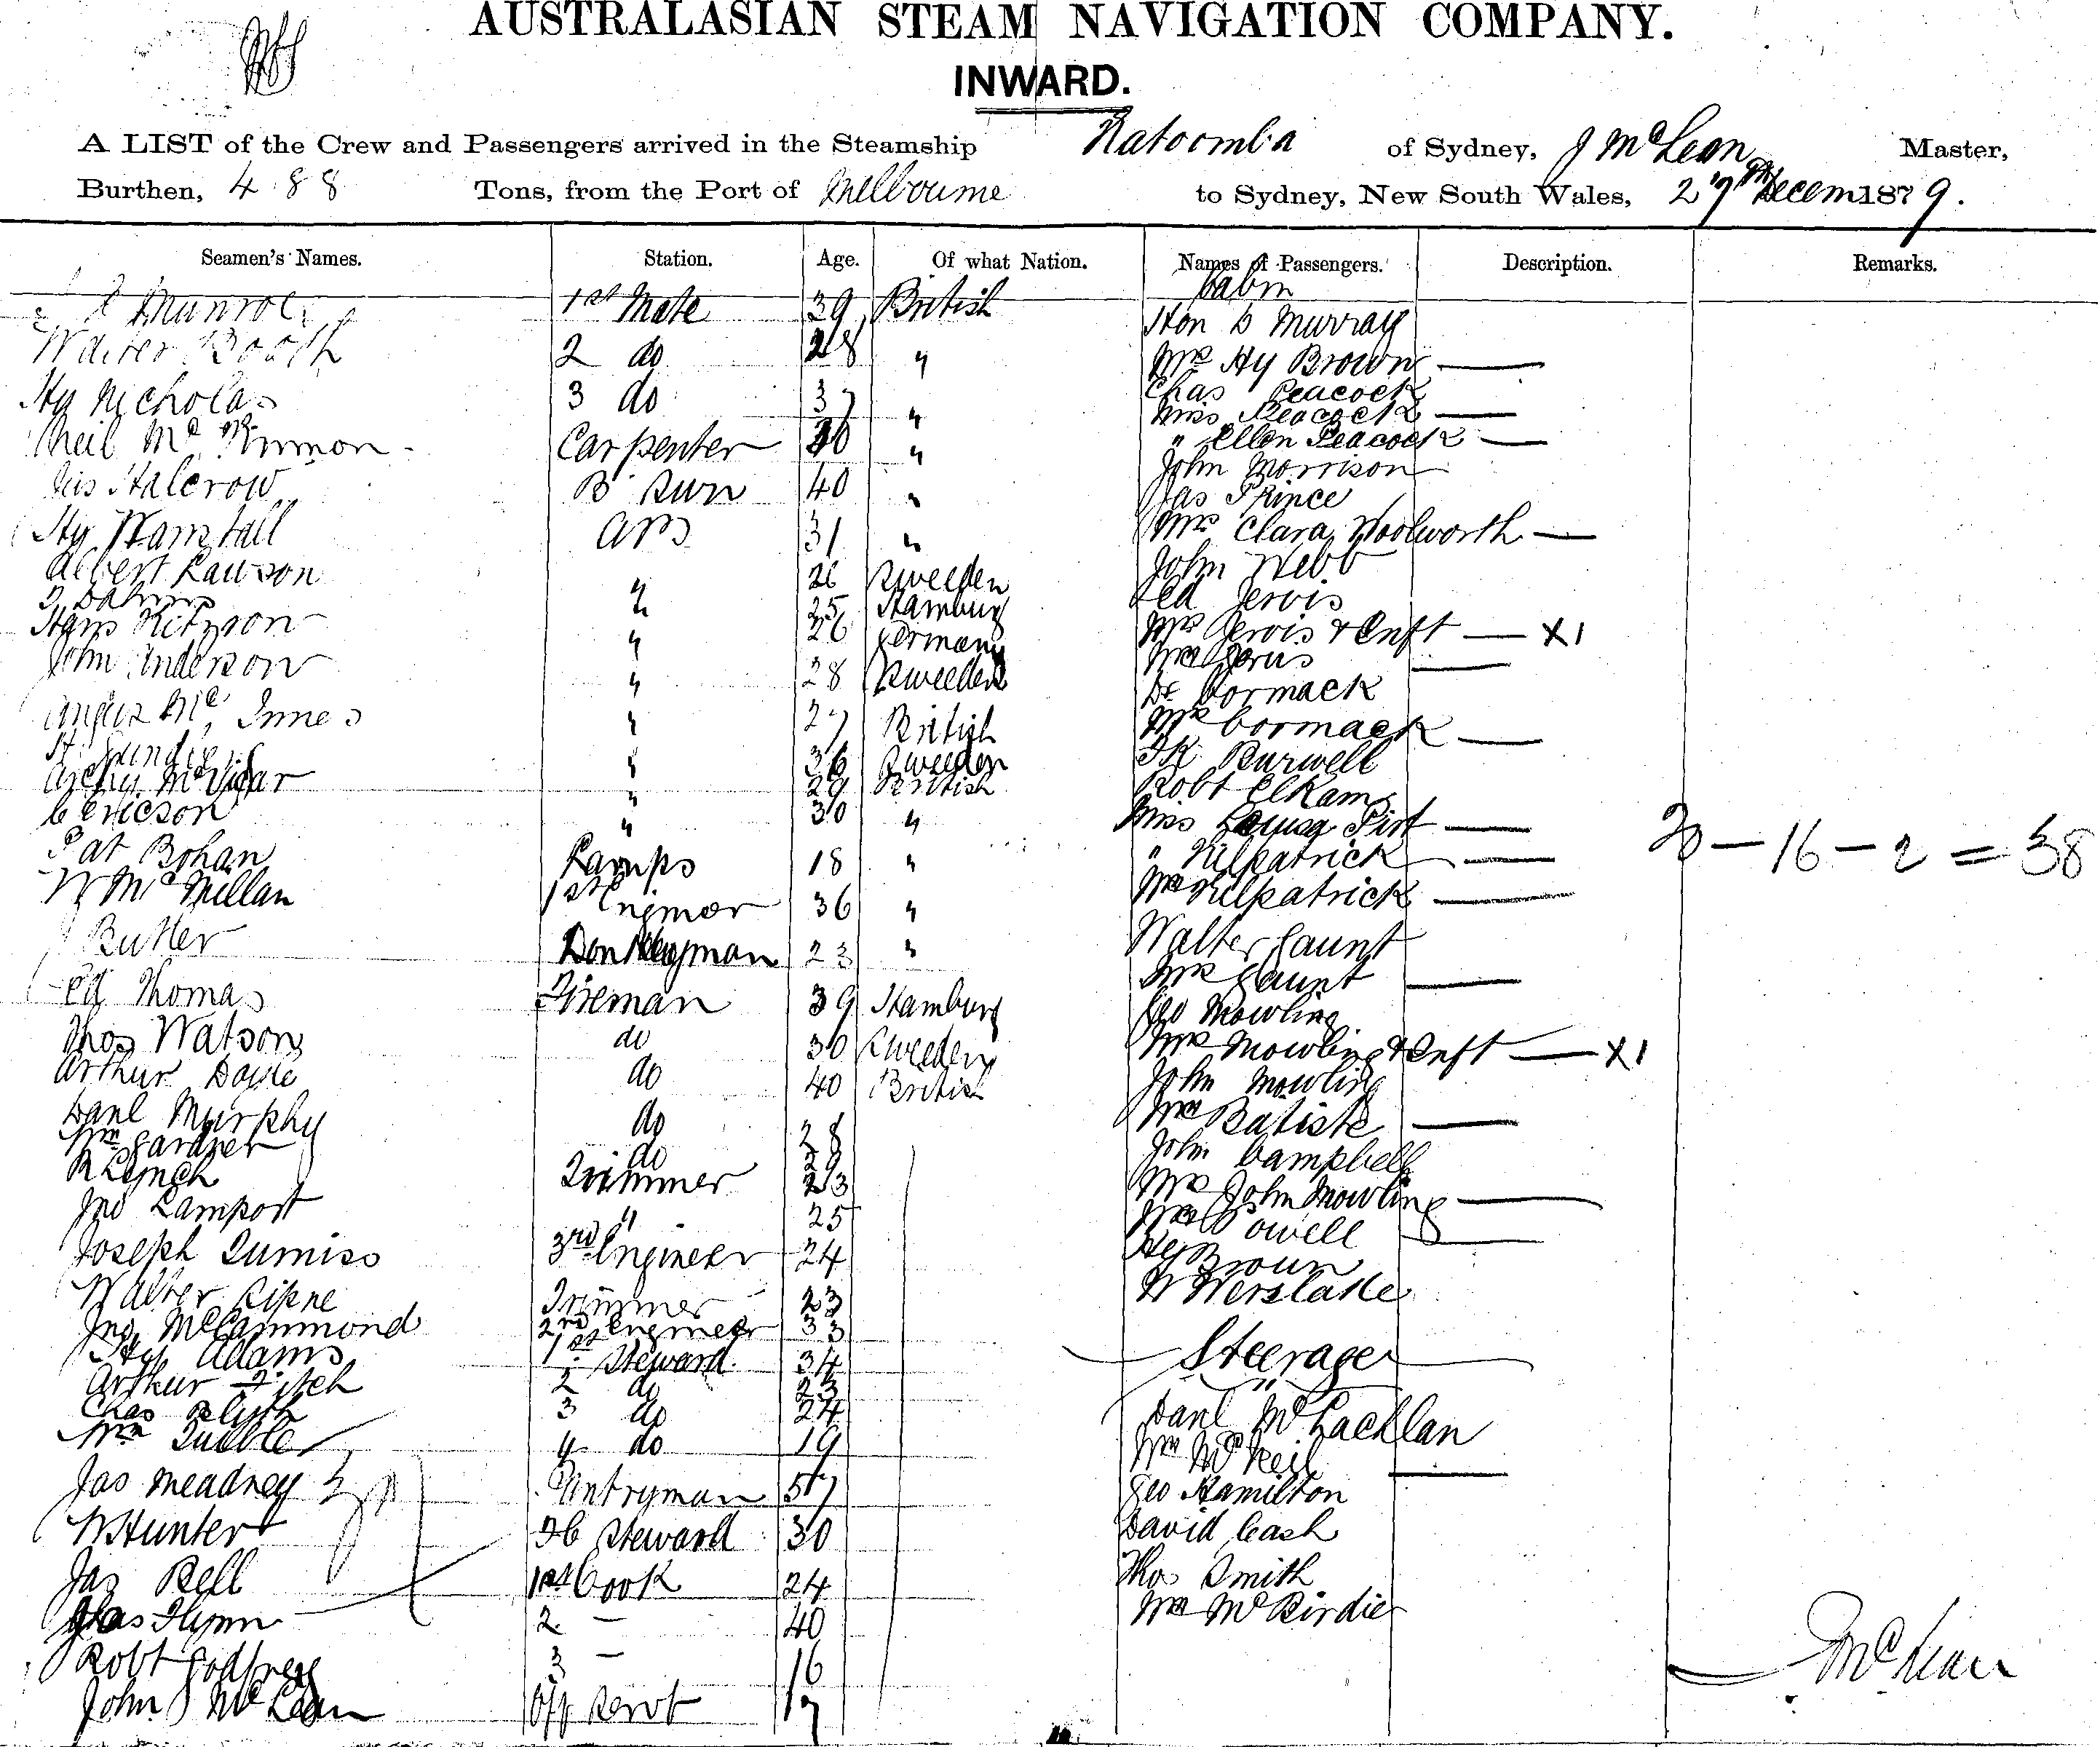 AUSTRALASIAN STEAM NAVIGATION COMPANY.
INWARD.
A LIST of the Crew and Passengers arrived in the Steamship Katoomba of Sydney, J McLean Master,
Burthen, 488 Tons, from the Port of Melbourne to Sydney, New South Wales, 27th Decem 1879.
Seamen's Names. Station. Age. Of what Nation. Names of Passengers. Description. Remarks.
Cabin
Munroe 1st Mate 39 British Hon D Murray
Walter Booth 2 do 28 " Mrs Hy Brown —
Hy Nicholas 3 do 37 " Chas Peacock
Miss Peacock —
Neil McKinnon Carpenter " " Ellen Peacock —
John Morrison
Jas Halcrow B Swn 40 " Jas Prince
Hy Wamstall ABS 31 " Mrs Clara Woolworth —
Albert Lawson " 26 Sweeden John Webb
" 25 Hamburg Ed Jervis
Hans Kitzson " 26 Germany Mrs Jervis & Inft — X1
John Anderson " 28 Sweeden —
Dr Cormack
Angus McInnes " 27 British Mrs Cormack —
" 36 Sweeden Fk Burwell
Archy McVicar " 29 British Robt Elkam
C Ericson " 30 " Miss Louisa Pirt —
Pat Bohan Lamps 18 " " Kilpatrick — 20 — 16 — 2 = 38
W McMillan 1st Enginer 36 " Mrs Kilpatrick —
Butler Donkeyman 23 " Walter Gaunt
Mrs Gaunt —
Ed Thomas Fireman 39 Hamburg Geo Mowling
Thos Watson do 30 Sweeden Mrs Mowling & Inft — X1
Arthur Doyle do 40 British John Mowling
Danl Murphy do 28 Mrs Batiste —
Wm Gardner do 29 John Campbell
R Lynch Trimmer 23 Mrs John Mowling —
Jno Lamport " 25 Mrs Powell —
Joseph Lumiso 3rd Engineer 24 Hy Brown
Walter Trimmer 23 W Werslake
Jno McCammond 2nd Engineer 33
Hy Adams 1st Steward 34 Steerage
Arthur Fitch 2 do 23
Chas Blyth 3 do 24 Danl McLachlan
Wm 4 do 19 Wm McNeil —
Jas Meadney Pantryman 57 Geo Hamilton
W Hunter FC Steward 30 David Cash
Jas Bell 1st Cook 24 Thos Smith
Flynn 2 — 40 Wm McBirdie
Robt Godfrey 3 — 16 J McLean
John J McLean Off Servt 17